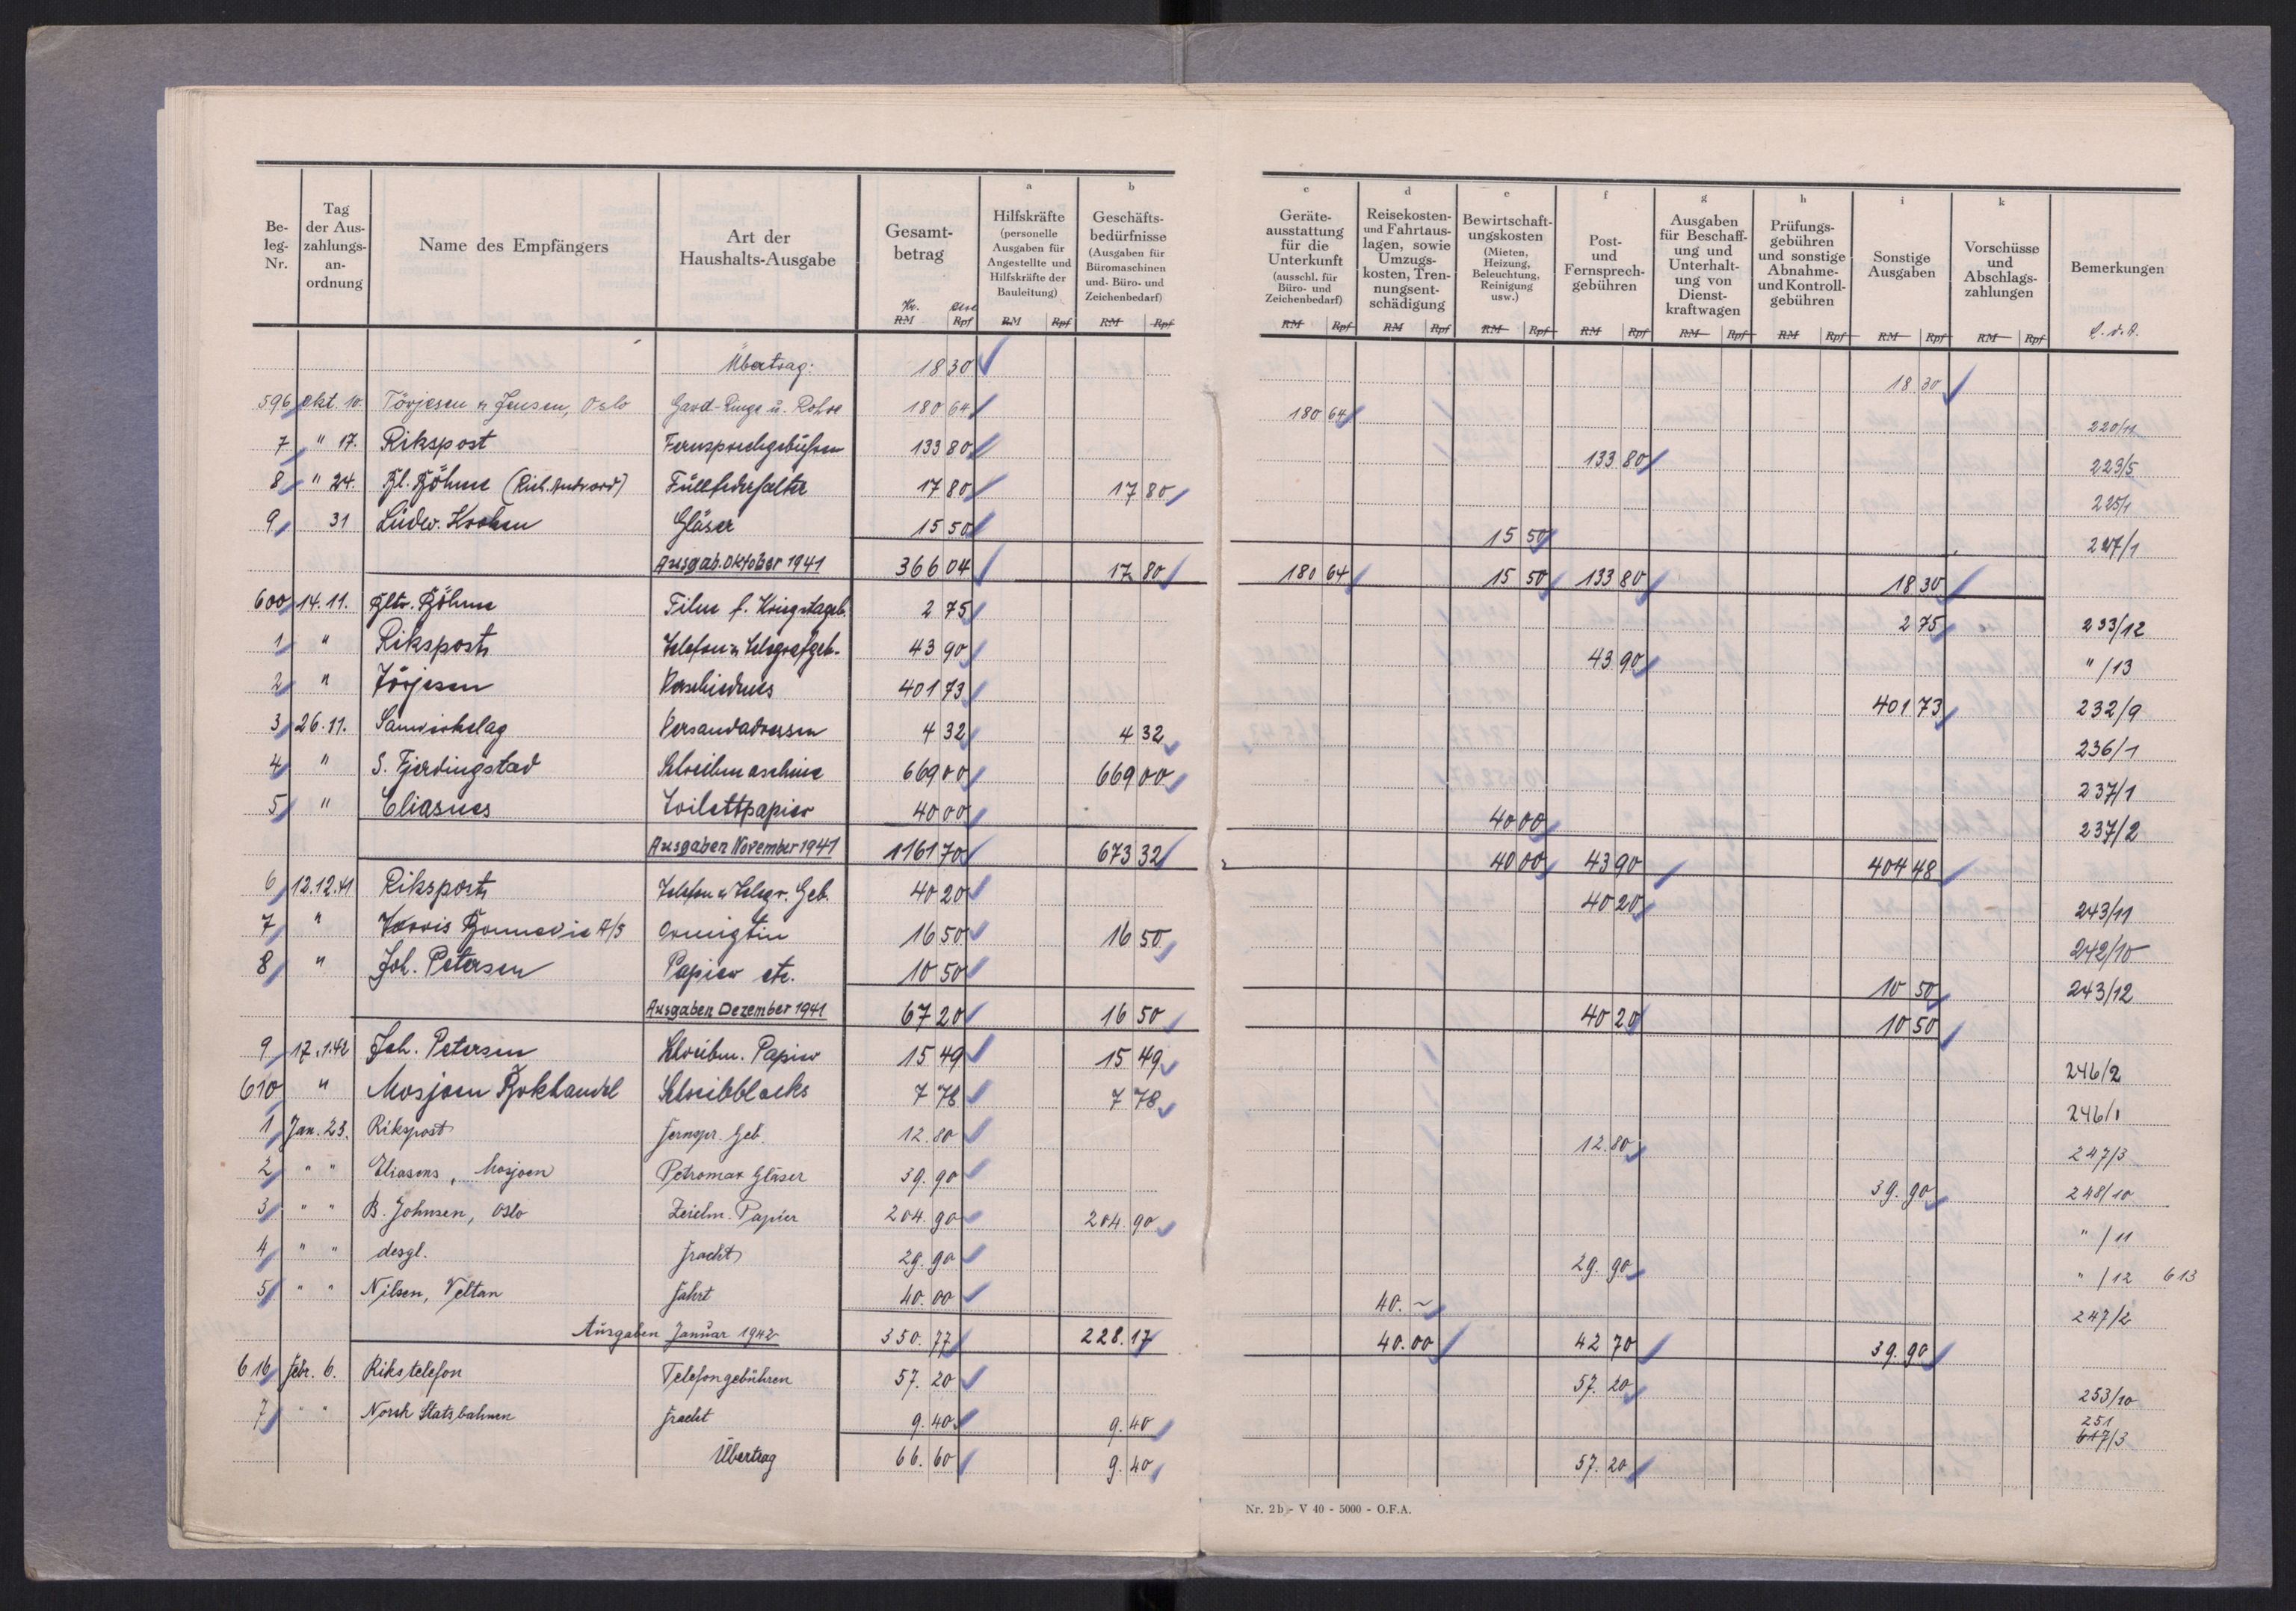 Be-
leg-
Nr.
Tag
der Aus-
zahlungs-
an-
ordnung
Name des Empfängers
Art der
Haushalts-Ausgabe
Gesamt-
betrag
Kr.
RM Rpf
a
Hilfskräfte
(personelle
Ausgaben für
Angestellte und
Hilfskräfte der
Bauleitung)
RM Rpf
b
Geschäfts-
bedürfnisse
(Ausgaben für
Büromaschinen
und- Büro- und
Zeichenbedarf)
RM Rpf
c
Geräte-
ausstattung
für die
Unterkunft
(ausschl. für
Büro- und
Zeichenbedarf)
RM Rpf
d
Reisekosten-
und Fahrtaus-
lagen, sowie
Umzugs-
kosten, Tren-
nungsent-
schädigung
RM Rpf
e
Bewirtschaft-
ungskosten
(Mieten,
Heizung,
Beleuchtung,
Reinigung
usw.)
RM Rpf
f
Post-
und
Fernsprech-
gebühren
RM Rpf
g
Ausgaben
für Beschaff-
ung und
Unterhalt-
ung von
Dienst-
kraftwagen
RM Rpf
h
Prüfungs-
gebühren
und sonstige
Abnahme-
und Kontroll-
gebühren
RM Rpf
i
Sonstige
Ausgaben
RM Rpf
k
Vorschüsse
und
Abschlags-
zahlungen
RM Rpf
Bemerkungen
Übertrag: 18 30 18 30
596 okt. 10 Törjesen u Jensen, Oslo Gard-Ringe u. Rohre 180 64 180 64 220/11
7 " 17. Rikspost Fernsprechgebühren 133 80 133 80 223/5
8 " 24. Bl. Böhme Füllfederhalter 17 80 17 80 225/1
9 31 Ludw. Krohen Gläser 15 50 15 50 227/1
Ausgab. Oktober 1941 366 04 17 80 180 64 15 50 133 80 18 30
600 14.11. Bltr. Böhme Film f. Kriegstageb. 2 75 2 75 233/12
1 " Rikspost Telefon u Telegrafgeb. 43 90 43 90 " /13
2 " Törjesen Verschiednes 401 73 401 73 232/9
3 26.11. Samvirkelag Versandadressen 4 32 4 32 236/1
4 " S. Fjerdingstad Schreibmaschine 669 00 669 00 237/1
5 " Eliasnes Toilettpapier 40 00 40 00 237/2
Ausgaben November 1941 1161 70 673 32 40 00 43 90 404 48
6 12.12.41 Rikspost Telefon u Telegr. Geb. 40 20 40 20 243/11
7 " Bonnevie A/S 16 50 16 50 242/10
8 " Joh. Petersen Papier etc. 10 50 10 50 243/12
Ausgaben Dezember 1941 67 20 16 50 40 20 10 50
9 17.1.42 Joh. Petersen Schreibm. Papier 15 49 15 49 246/2
610 " Mosjoen Bokhandel Schreibblocks 7 78 7 78 246/1
1 Jan. 23. Rikspost Fernspr. Geb. 12.80 12.80 247/3
2 " " Eliasens, Mosjoen Petromax Gläser 39.90 39.90 248/10
3 " " B. Johnsen, Oslo Zeichn. Papier 204.90 204.90 " /11
4 " " desgl. Fracht 29.90 29.90 " /12 613
5 " " Nilsen, Veltan Fahrt 40.00 40.- 247/2
Ausgaben Januar 1942 350.77 228.17 40.00 42 70 39.90
616 Febr. 6. Rikstelefon Telefongebühren 57.20 57.20 253/10
7 " " Norsk Statsbahnen Fracht 9.40 9.40 251 617/3
Übertrag 66.60 9.40 57.20
Nr. 2b - V 40 - 5000 - O.F.A.